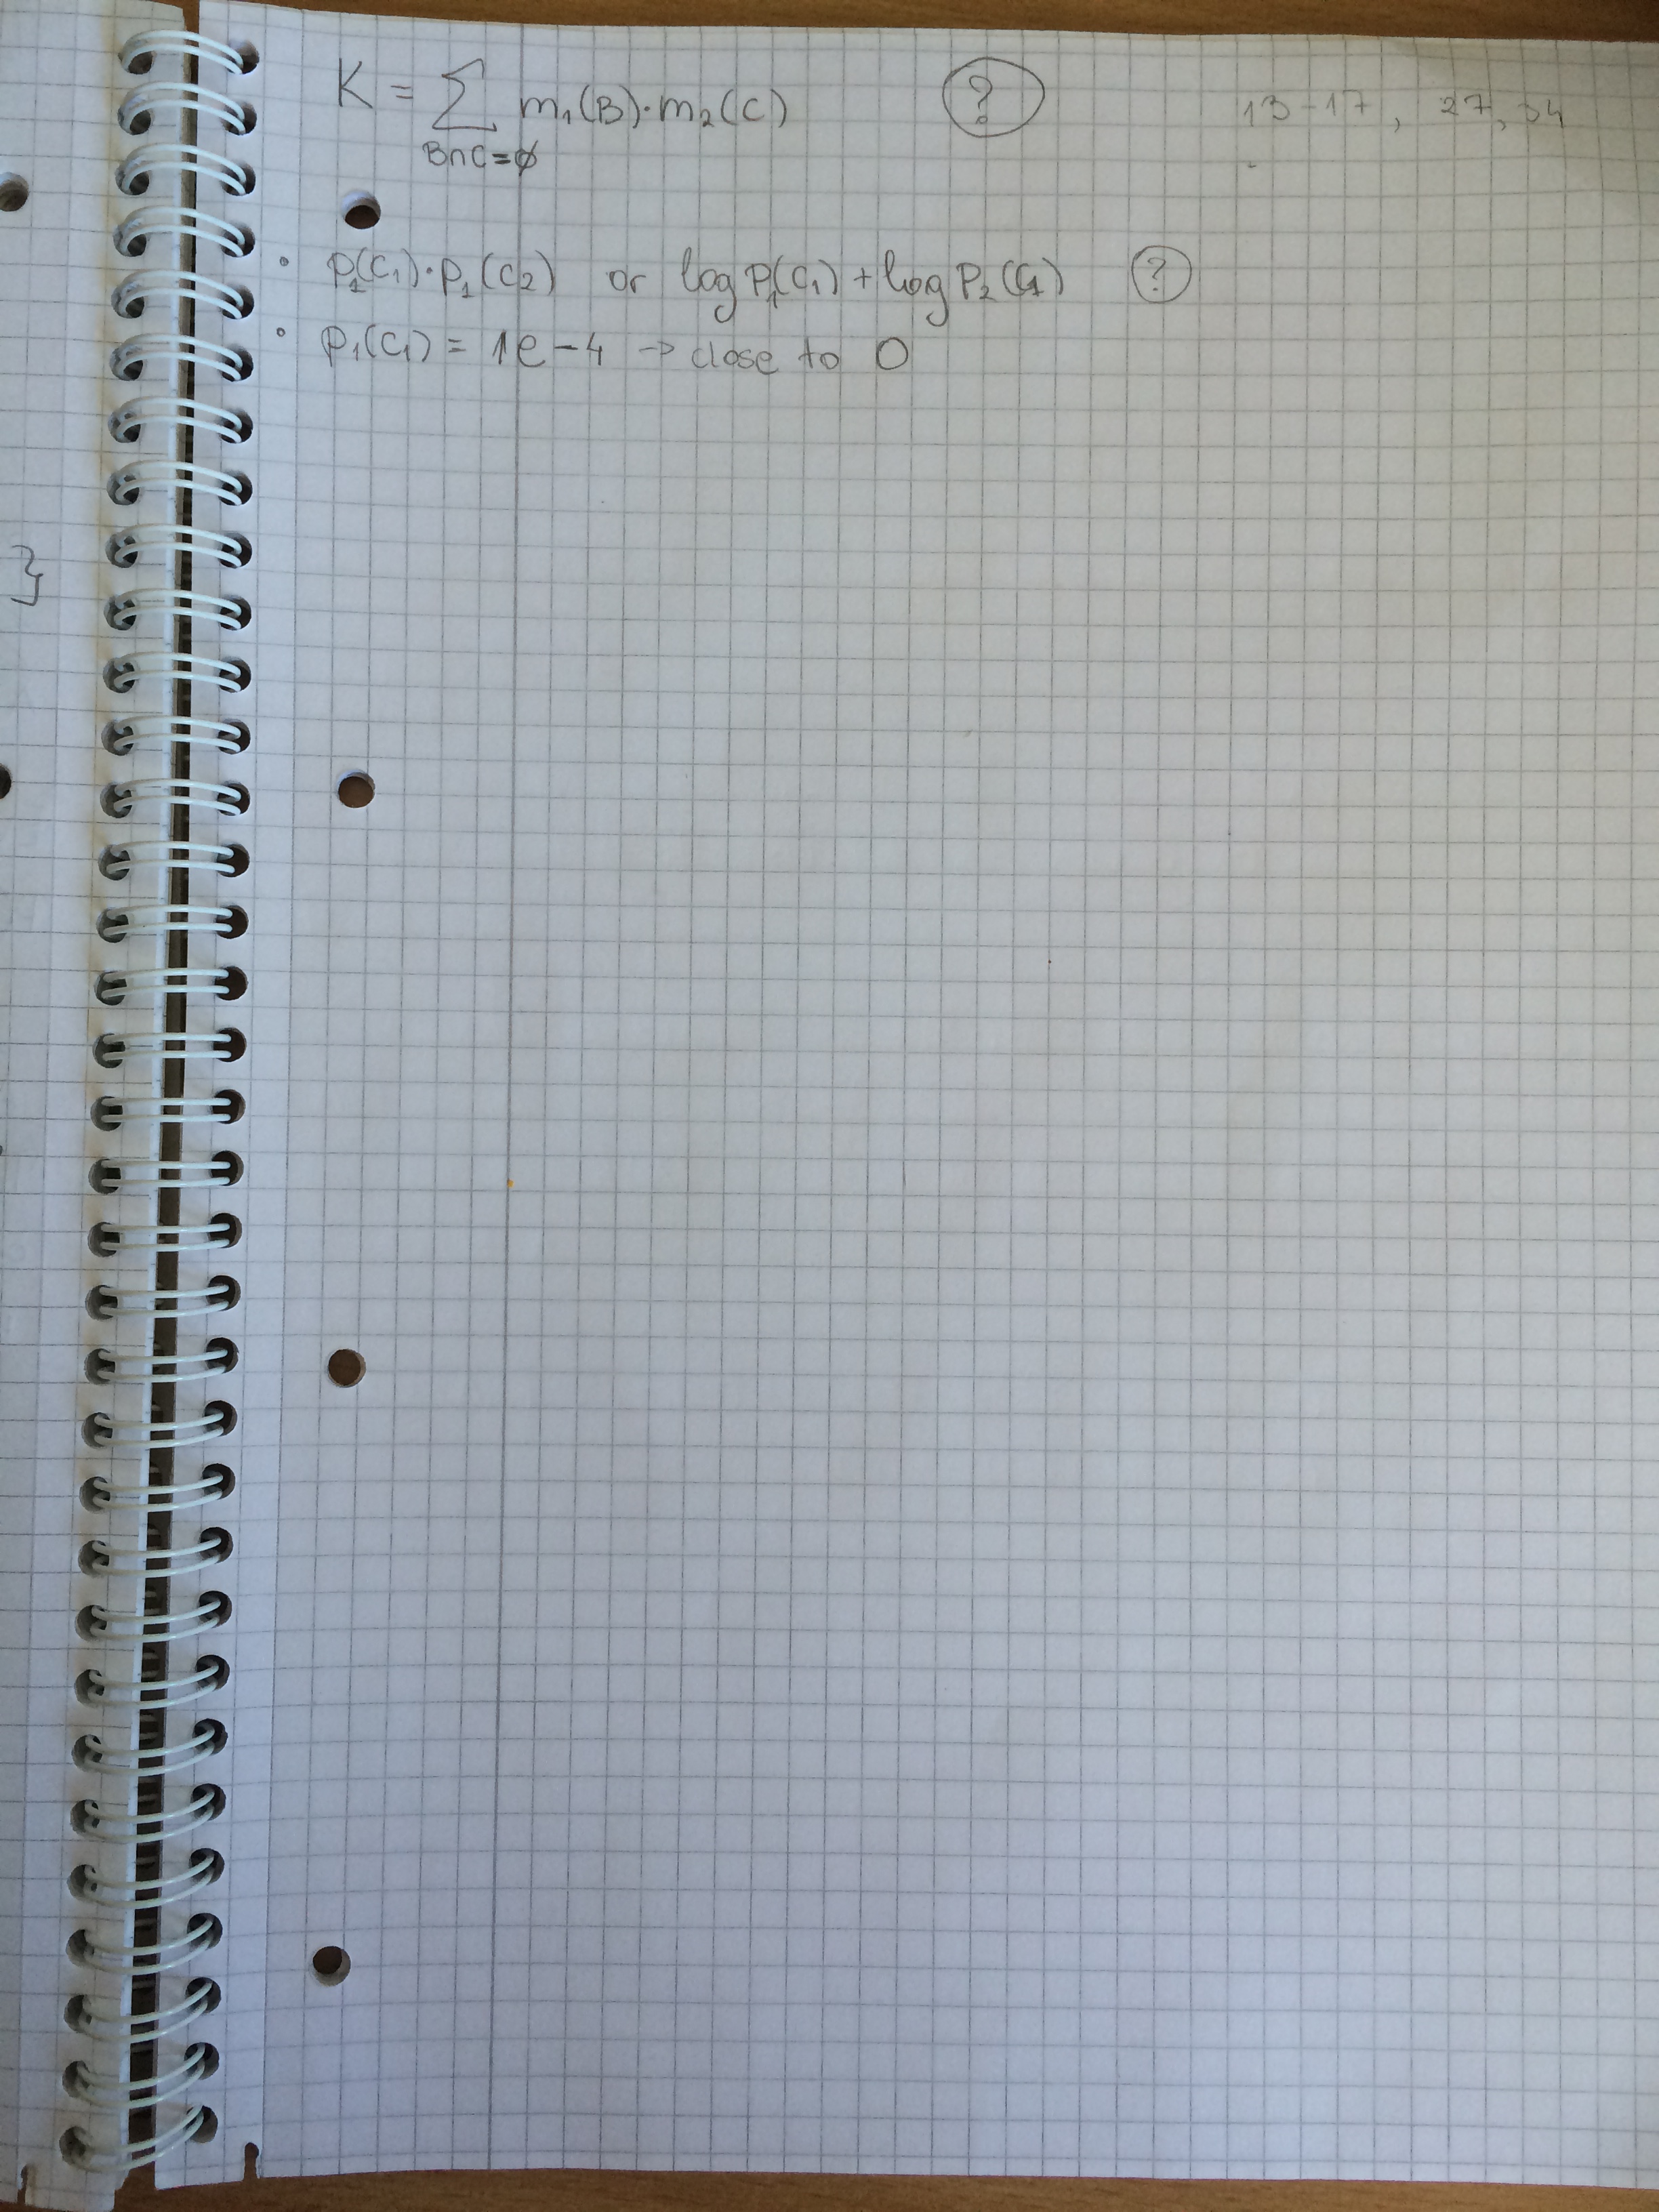 K = ∑ m₁(B)·m₂(C) ? 13-17, 27, 34
B∩C=∅
• p₁(C₁)·p₁(C₂) or log p₁(C₁) + log p₂(C₁) ?
• p₁(C₁) = 1e-4 → close to 0
}